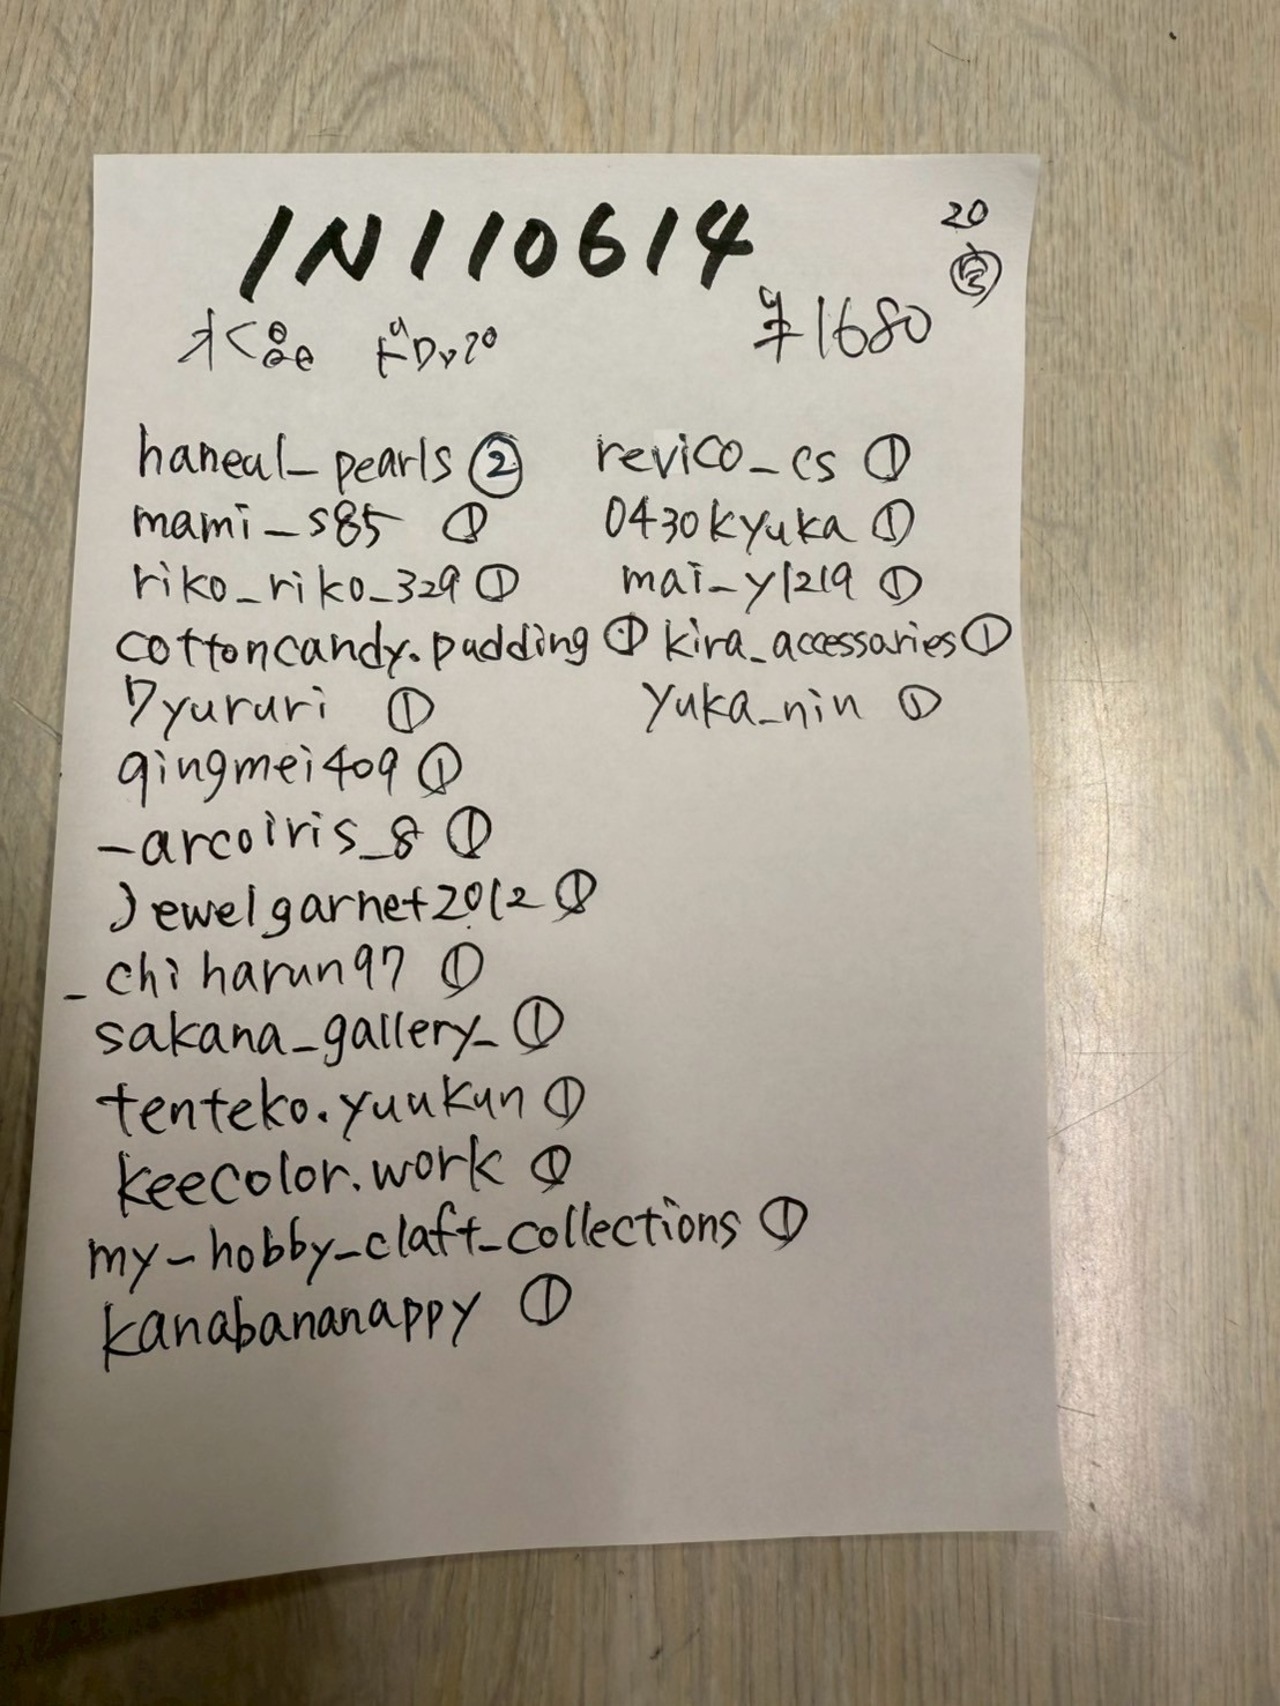 IN110614
20
水晶
¥1680
haneul_pearls ②
mami_s85 ①
riko_riko_329 ①
cottoncandy.pudding ①
7yururi ①
qingmei409 ①
_arcoiris_8 ①
Jewelgarnet2012 ①
_chiharun97 ①
sakana_gallery_ ①
tenteko.yuukun ①
keecolor.work ①
my_hobby_claft_collections ①
kanabananappy ①
revico_cs ①
0430kyuka ①
mai_y1219 ①
kira_accessories ①
yuka_nin ①